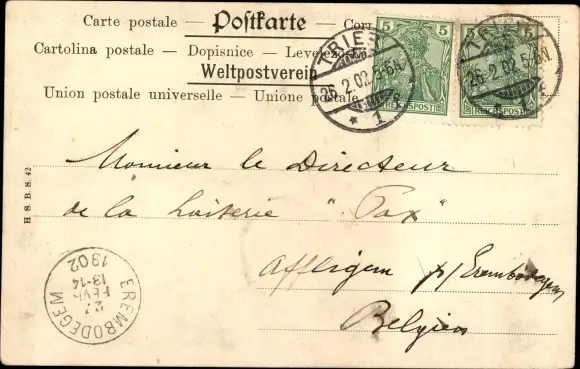 Carte postale — Postkarte — Corr
Cartolina postale — Dopisnice — Levelező
Weltpostverein
Union postale universelle — Unione postale
5 5
REICHSPOST
5 5
REICHSPOST
TRIER
26.2.02.5-6N.
* 1 f
TRIER
26.2.02.5-6N.
* 1 f
H. S. B. S. 42
Monsieur le Directeur
de la laiterie "Pax"
Affligem p/ Erembodegem
Belgien
EREMBODEGEM
27
FEVR
13-14
1902